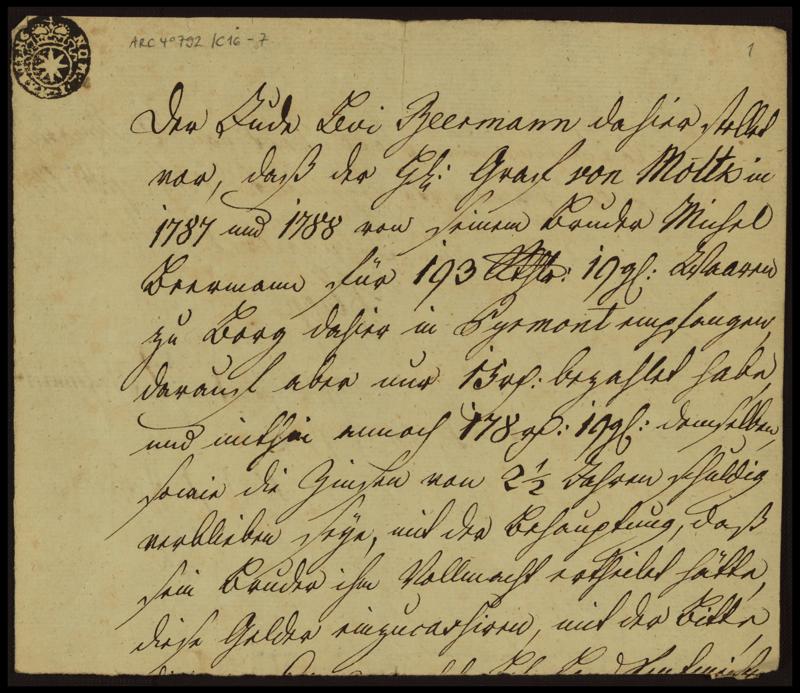 ARC 4° 792 /C16-7
1
Der Jude Levi Beermann dahier stellet
vor, daß der Hr: Graf von Moltk in
1787 und 1788 von seinem Bruder Michel
Beermann für 193 Rthlr: 19 gl: Waaren
zu Borg dahier in Pyrmont empfangen,
darauf aber nur 15 rf: bezahlet habe,
und mithin annoch 178 rf: 19 gl: demselben,
sowie die Zinsen von 2 1/2 Jahren schuldig
verblieben seye, mit der Behauptung, daß
sein Bruder ihm Vollmacht ertheilet hätte,
diese Gelder einzucassiren, mit der Bitte,